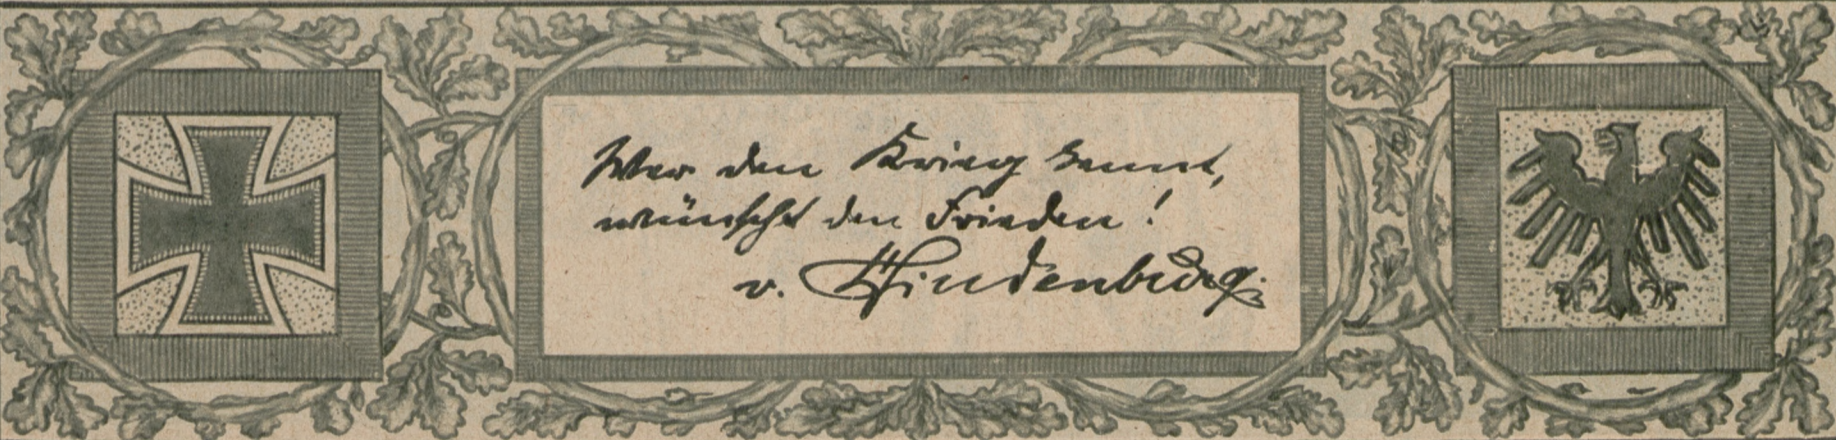 Wer den Krieg kennt,
wünscht den Frieden!
v. Hindenburg.